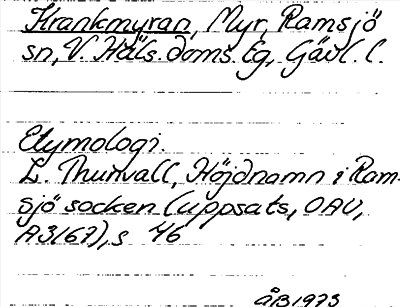 Krankmyran, Myr, Ramsjö
sn, V. Häls. doms. Eg, Gävl. l.
Etymologi.
L. Thunvall, Höjdnamn i Ram-
sjö socken (uppsats, OAU,
A3(67), s 46
ÅB 1973